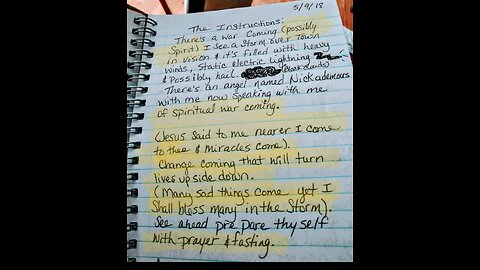 5/9/18
The Instructions:
There's a war coming (possibly
Spirit) I see a storm over town
in vision & it's filled with heavy
winds, static electric lightning
& possibly hail. (Black clouds)
There's an angel named Nickademous
with me now speaking with me
of spiritual war coming.
(Jesus said to me nearer I come
to thee & miracles come).
Change coming that will turn
lives up side down.
(Many sad things come yet I
shall bless many in the storm).
See ahead pre pare thy self
with prayer & fasting.